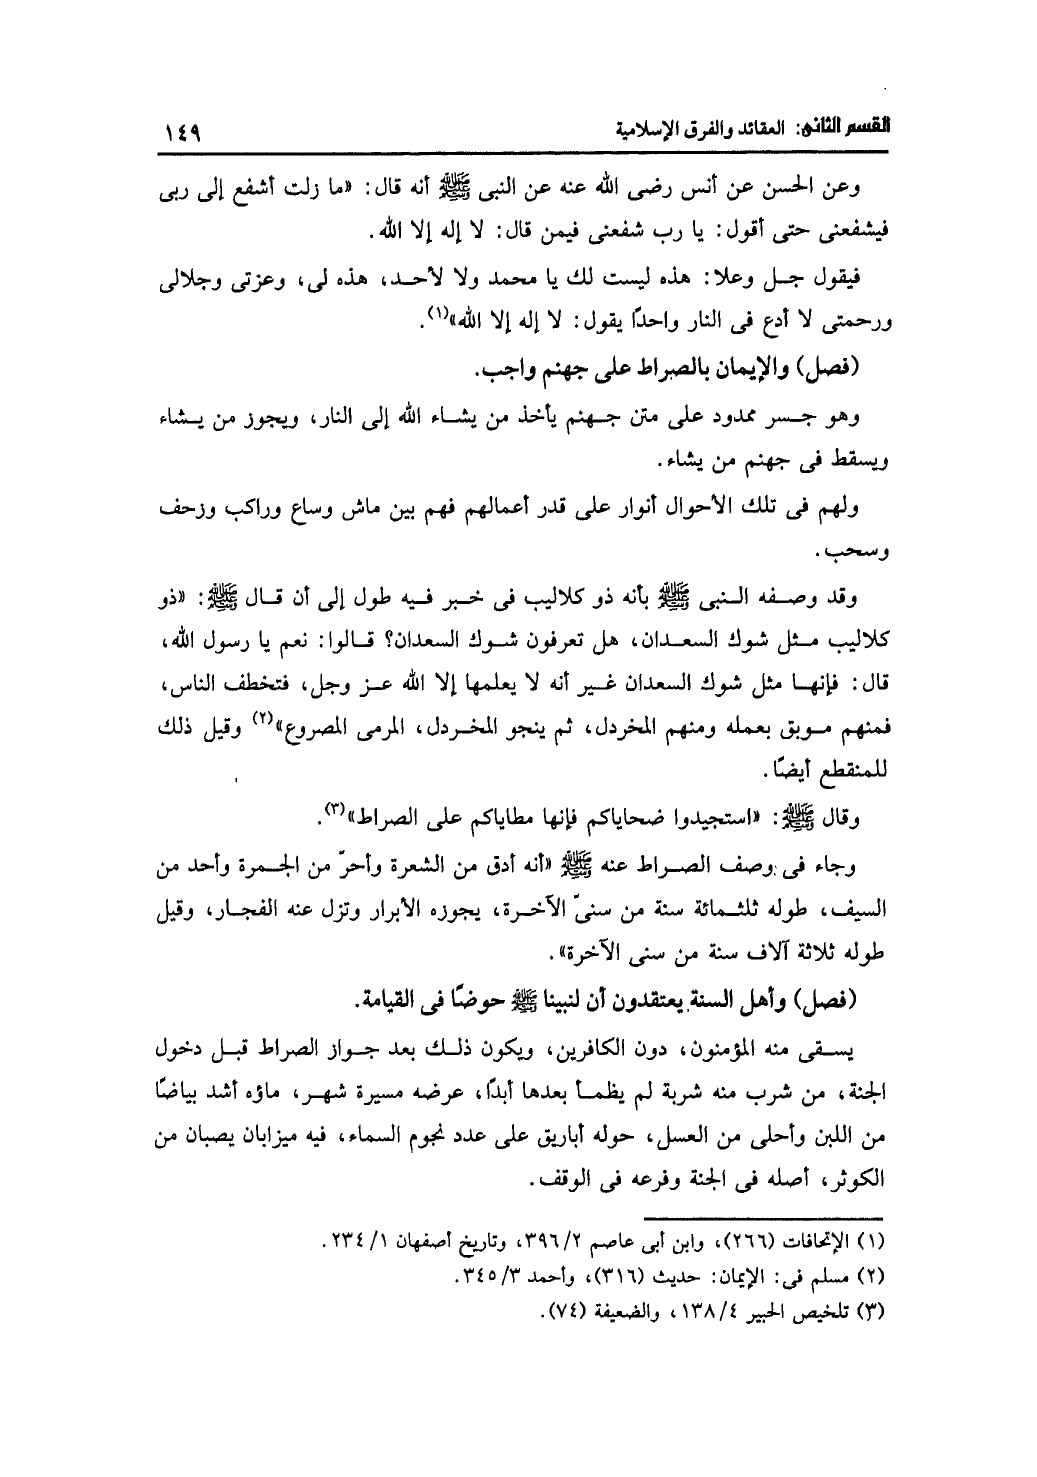 القسم الثانى: العقائد والفرق الإسلامية ١٤٩
وعن الحسن عن أنس رضى الله عنه عن النبى ﷺ أنه قال: «ما زلت أشفع إلى ربى
فيشفعنى حتى أقول: يا رب شفعنى فيمن قال: لا إله إلا الله.
فيقول جل وعلا: هذه ليست لك يا محمد ولا لأحد، هذه لى، وعزتى وجلالى
ورحمتى لا أدع فى النار واحدًا يقول: لا إله إلا الله»(١).
(فصل) والإيمان بالصراط على جهنم واجب.
وهو جسر ممدود على متن جهنم يأخذ من يشاء الله إلى النار، ويجوز من يشاء
ويسقط فى جهنم من يشاء.
ولهم فى تلك الأحوال أنوار على قدر أعمالهم فهم بين ماش وساع وراكب وزحف
وسحب.
وقد وصفه النبى ﷺ بأنه ذو كلاليب فى خبر فيه طول إلى أن قال ﷺ: «ذو
كلاليب مثل شوك السعدان، هل تعرفون شوك السعدان؟ قالوا: نعم يا رسول الله،
قال: فإنها مثل شوك السعدان غير أنه لا يعلمها إلا الله عز وجل، فتخطف الناس،
فمنهم موبق بعمله ومنهم المخردل، ثم ينجو المخردل، المرمى المصروع»(٢) وقيل ذلك
للمنقطع أيضًا.
وقال ﷺ: «استجيدوا ضحاياكم فإنها مطاياكم على الصراط»(٣).
وجاء فى وصف الصراط عنه ﷺ «أنه أدق من الشعرة وأحرّ من الجمرة وأحد من
السيف، طوله ثلثمائة سنة من سنىّ الآخرة، يجوزه الأبرار وتزل عنه الفجار، وقيل
طوله ثلاثة آلاف سنة من سنى الآخرة».
(فصل) وأهل السنة يعتقدون أن لنبينا ﷺ حوضًا فى القيامة.
يسقى منه المؤمنون، دون الكافرين، ويكون ذلك بعد جواز الصراط قبل دخول
الجنة، من شرب منه شربة لم يظمأ بعدها أبدًا، عرضه مسيرة شهر، ماؤه أشد بياضًا
من اللبن وأحلى من العسل، حوله أباريق على عدد نجوم السماء، فيه ميزابان يصبان من
الكوثر، أصله فى الجنة وفرعه فى الوقف.
(١) الإتحافات (٢٦٦)، وابن أبى عاصم ٣٩٦/٢، وتاريخ أصفهان ٢٣٤/١.
(٢) مسلم فى: الإيمان: حديث (٣١٦)، وأحمد ٣٤٥/٣.
(٣) تلخيص الحبير ١٣٨/٤، والضعيفة (٧٤).